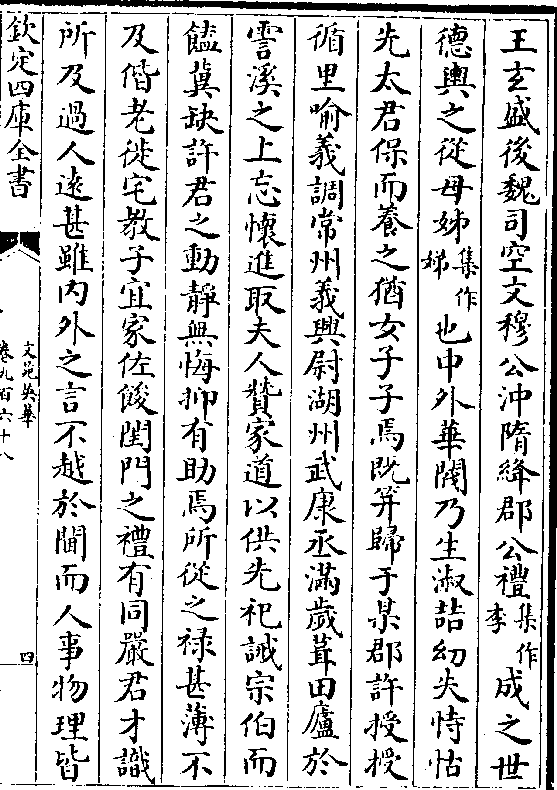 王玄盛後魏司空文穆公沖隋絳郡公禮集作李成之世
德輿之從母姊集作娣也中外華閥乃生淑喆幼失恃怙
先太君保而養之猶女子子焉既笄歸于某郡許授授
循里喻義調常州義興尉湖州武康丞滿歲葺田廬於
霅溪之上忘懷進取夫人贊家道以供先祀誡宗伯而
饁兾缺許君之動靜無悔抑有助焉所從之禄甚薄不
及偕老徙宅教子宜家佐餕閨門之禮有同嚴君才識
所及過人遠甚雖内外之言不越於閫而人事物理皆
欽定四庫全書
文苑英華
卷九百六十八
四